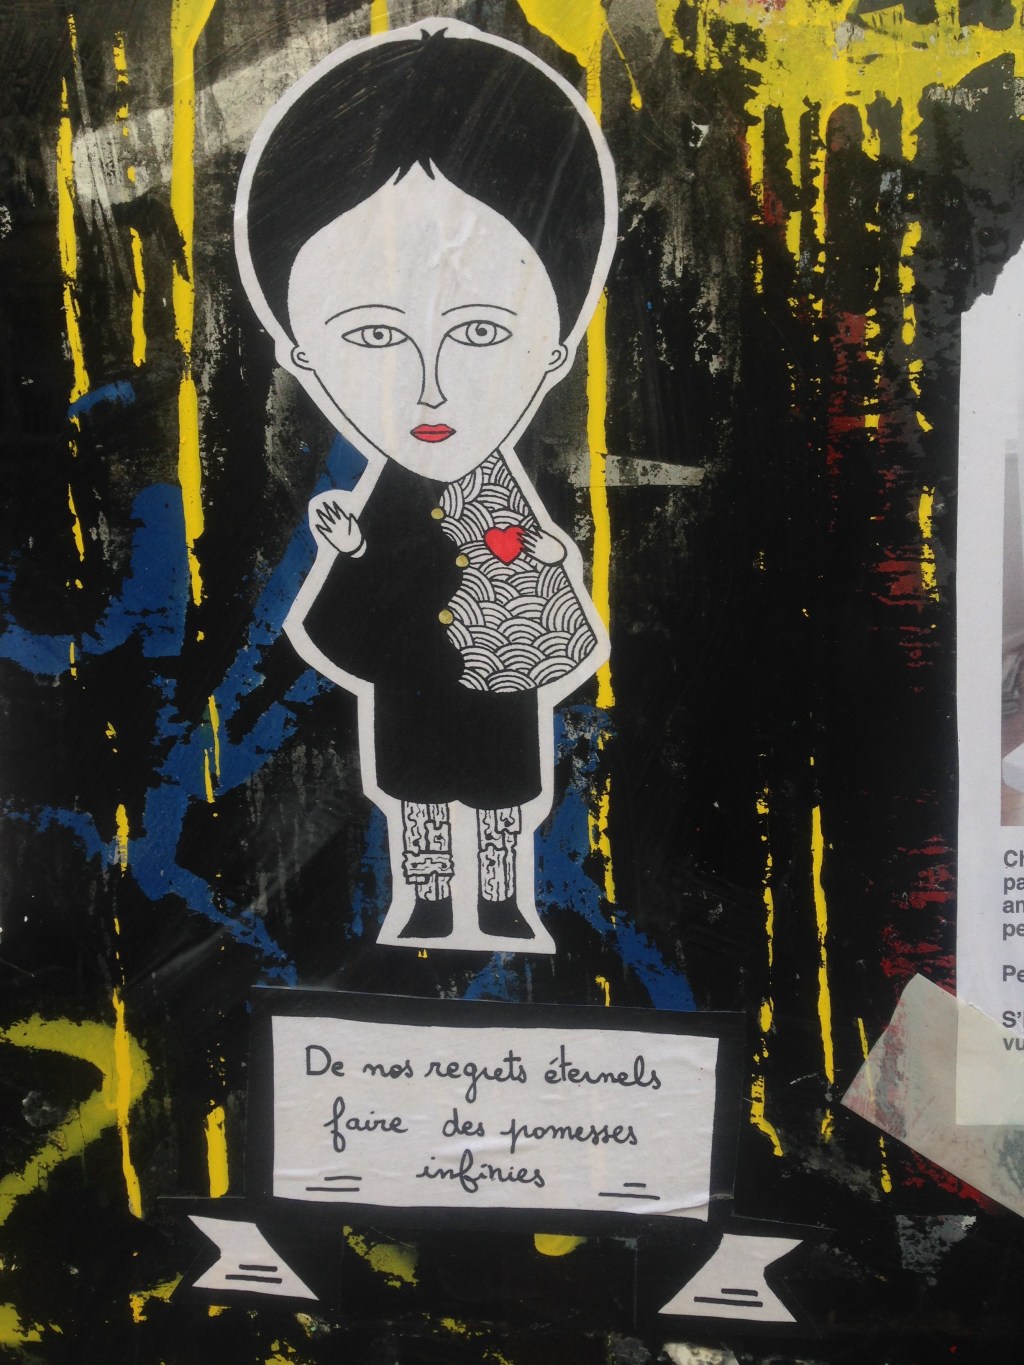 De nos regrets éternels
faire des pomesses
infinies
Ch
pa
an
pe
Pe
S'
vu